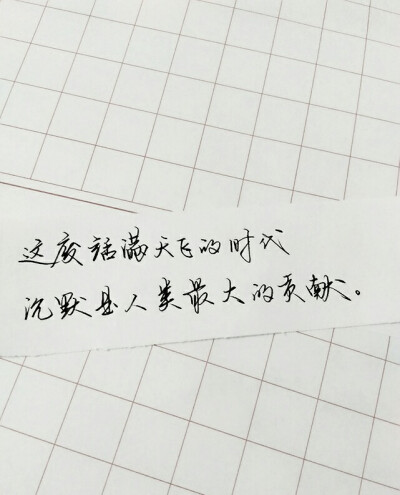 这废话满天飞的时代
沉默是人类最大的贡献。